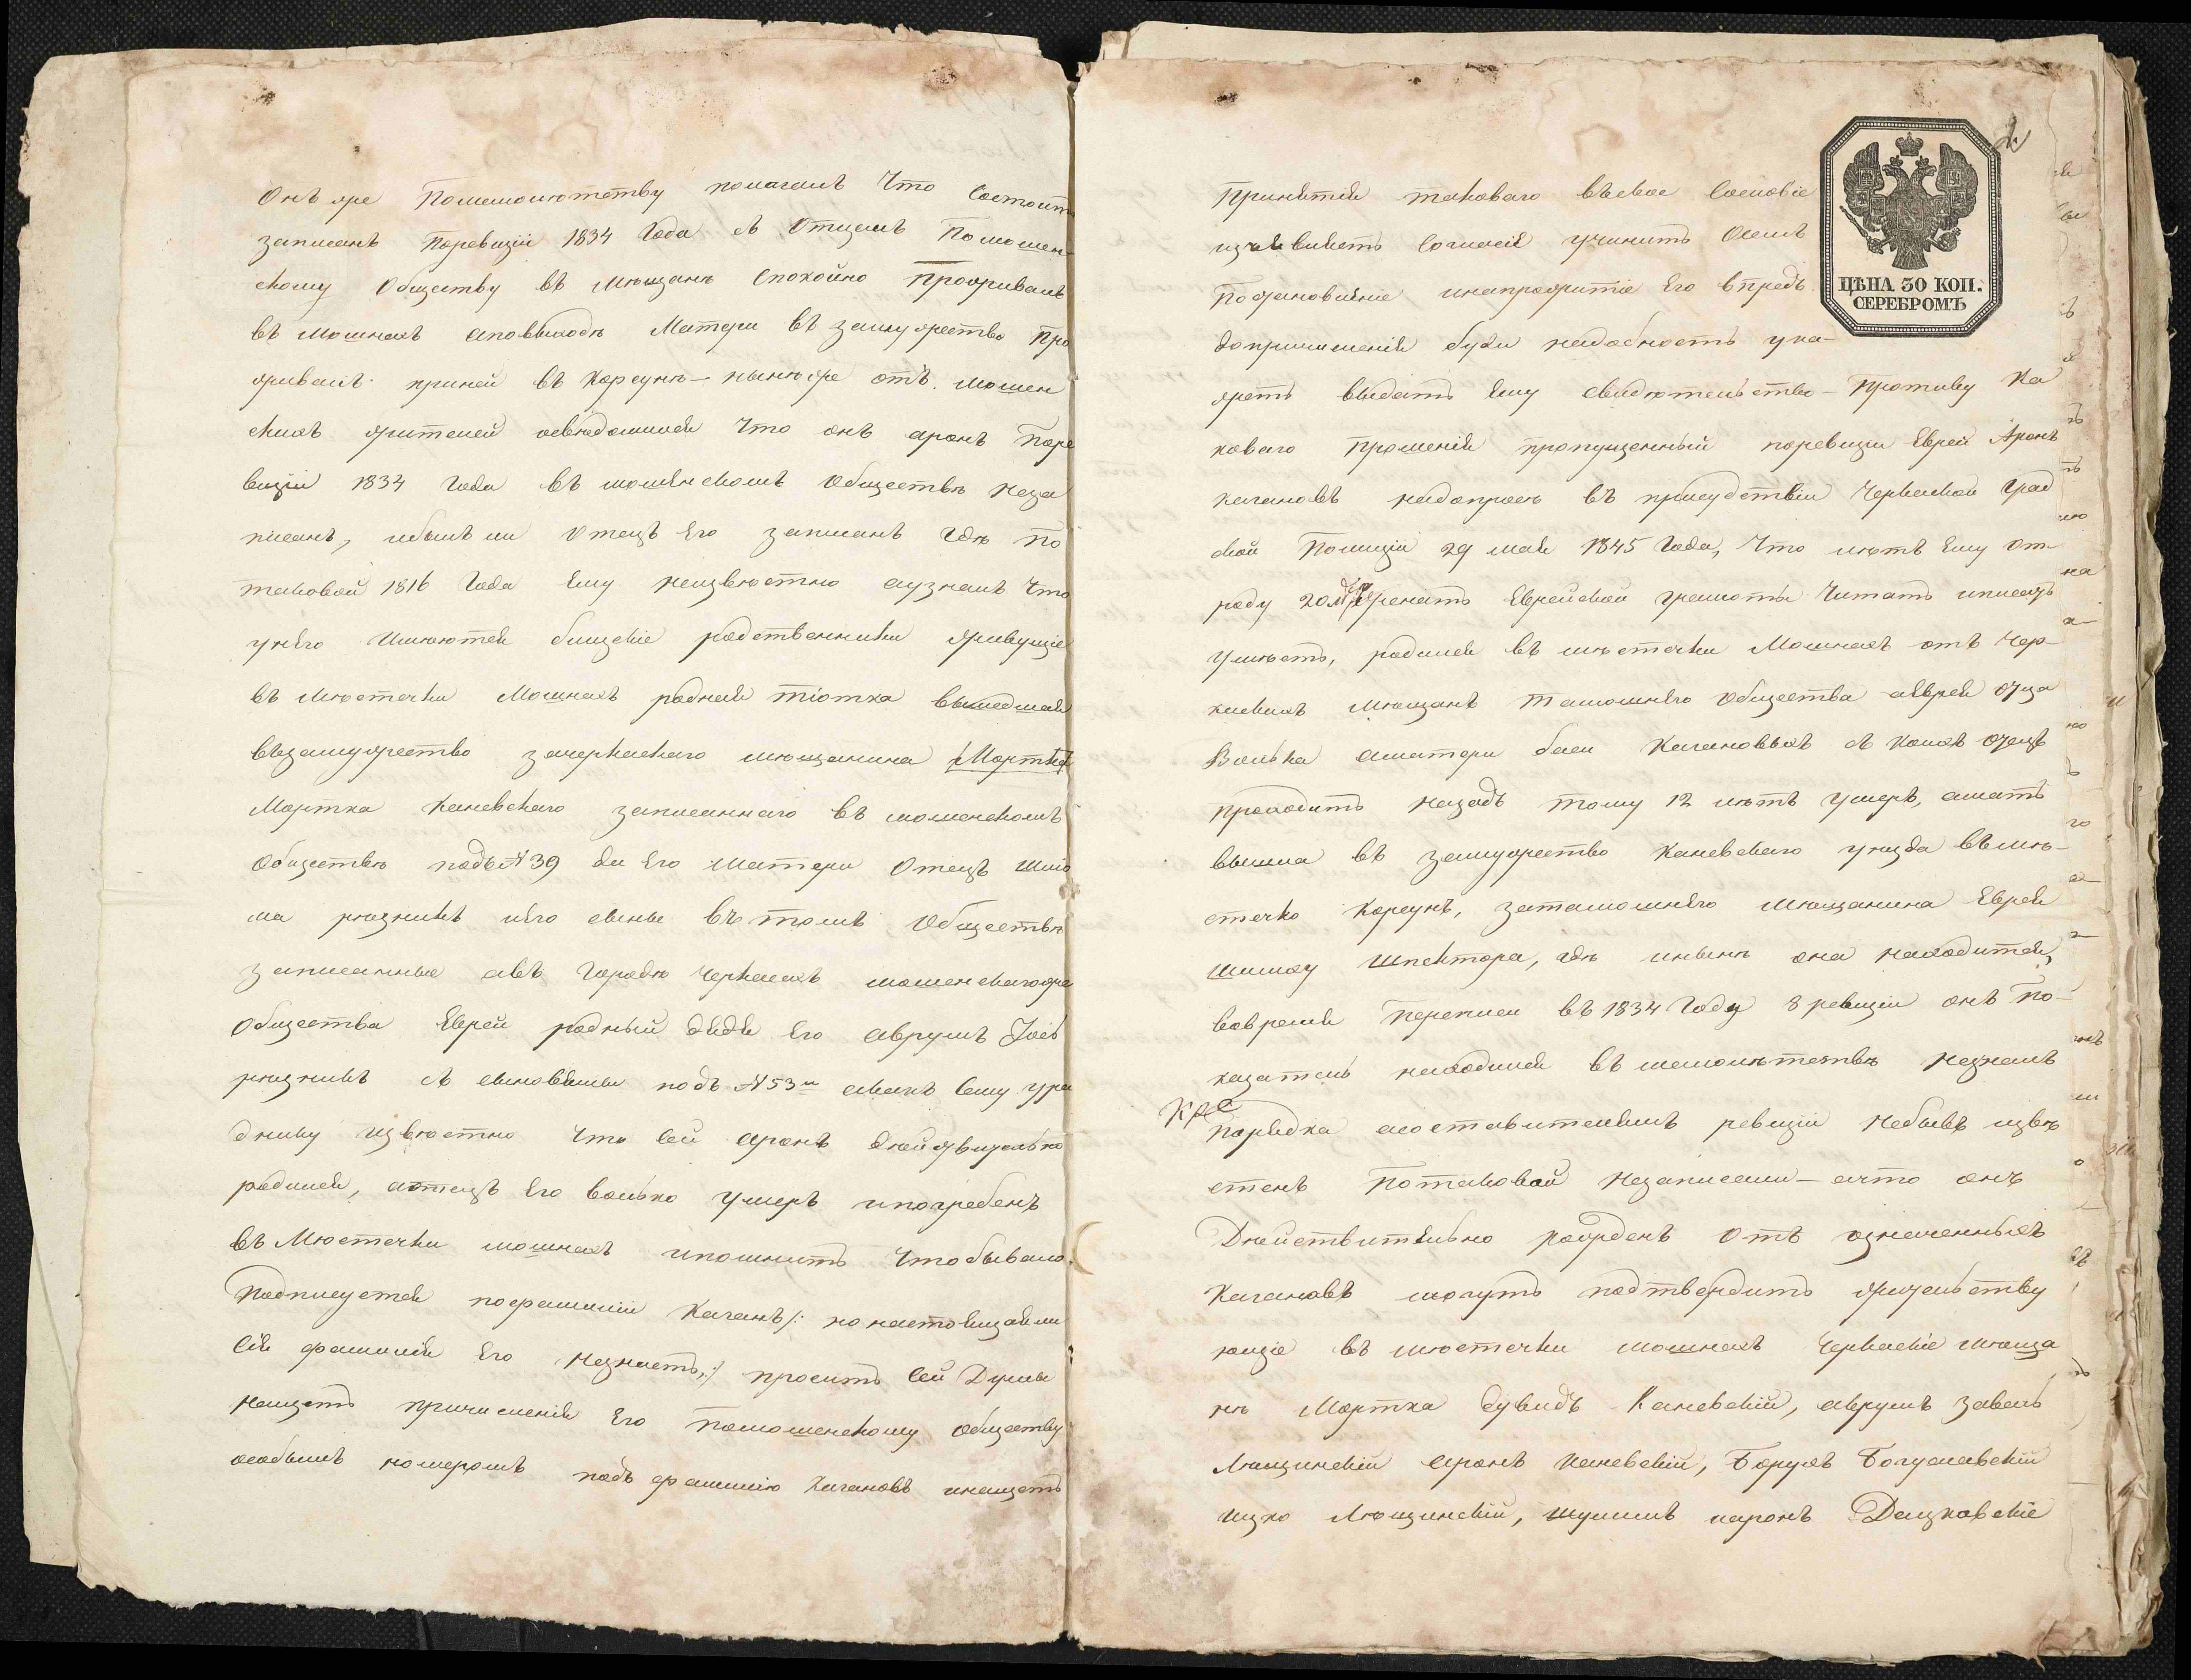 Онъ же Помемолютству полагалъ Что Состоитъ
записанъ Поревизіи 1834 Года съ Отцемъ Помошен-
скому Обществу въ Мѣщанѣ Спокойно Проживалъ
въ Мошнахъ аповыходѣ Матери въ замужество Про
живалъ приней въ Корсунѣ – нынѣ же отъ Мошен
скихъ жителей освѣдомился Что онъ аронъ Поре
визіи 1834 Года въ мошенскомъ Обществѣ Неза
писанъ, ибылъ ли Отецъ Его записанъ гдѣ По
таковой 1816 Года Ему неизвѣстно аузналъ Что
унего Имѣются близскіе родственники живущіе
въ Мѣстечки Мошнахъ родная тіотка вышедшая
въЗамужество зачеркаскаго мѣщанина Мортка
Мортка Каневскаго записаннаго въ мошенскомъ
Обществѣ подъ №39 да Его Матери Отецъ Шліо
ма рѣзникъ иего сынье въ томъ Обществѣ
записанные авъ Городѣ Черкасахъ мошенскагоже
Общества Еврей родный дядя Его Аврумъ Іосъ
рѣзникъ съ сыновьями подъ №53м Сему
днику извѣстно что сей аронъ дѣйствительно
родился, аотецъ Его волько умеръ ипогребенъ
въ Мѣстечки мошнахъ ипомнитъ Чтобывало
Подписуется пофамиліи Каганъ/: но настоящаяли
Сія фамилія Его Незнаетъ,:/ проситъ Сей Думы
насчетъ причисленія Его Помошенскому Обществу
особымъ номеромъ подъ фамиліею Кагановъ инащетъ
2
ЦѢНА 30 КОП.
СЕРЕБРОМЪ
Принятія таковаго въсвое Сословіе
изъявляетъ Согласія учинить Осемъ
Постановленіе инапрожитіе Его впредъ
допричисленія буди надобность ука-
жетъ выдать Ему свидѣтельство – Противу Ка
коваго Прошенія пропущенный поревизіи Еврей Аронъ
Кагановъ надопросѣ въ присудствіи Черкаской Град
ской Полиціи 29 мая 1845 Года, Что лѣтъ Ему От
роду 20 Еврейской грамоты Читать иписать
Умѣетъ, родился въ мѣстечки Мошнахъ отъ Чер-
каскихъ Мѣщанъ Тамошнего Общества аеврея отца
Волька аматери баси Кагановыхъ съ Коихъ отецъ
Проходитъ Назадъ тому 12 лѣтъ Умеръ, амать
вышла въ замужество Каневскаго уѣзда въмѣ-
стечко Корсунъ, затамошнего Мѣщанина Еврея
Шлиому Шпектора, гдѣ инынѣ она находится,
вовремя Переписи въ 1834 Году 8 ревизіи онъ По-
казатель находился въ малолѣтствѣ Незналъ
Порядка асоставителямъ ревизіи Небывъ извѣ
стенъ Потаковой Незаписали – ачто онъ
Дѣйствительно рожденъ Отъ означенныхъ
Кагановъ могутъ подтвердить жительству
ющіе въ мѣстечки мошнахъ Черкаскіе мѣща
нѣ Мортка Дувидъ Каневскій, аврумъ завель
Лящинскій Аронъ Каневскій, Борухъ Богуславскій
Ицко Лящинскій, Шулимъ иаронъ Дашковскіе